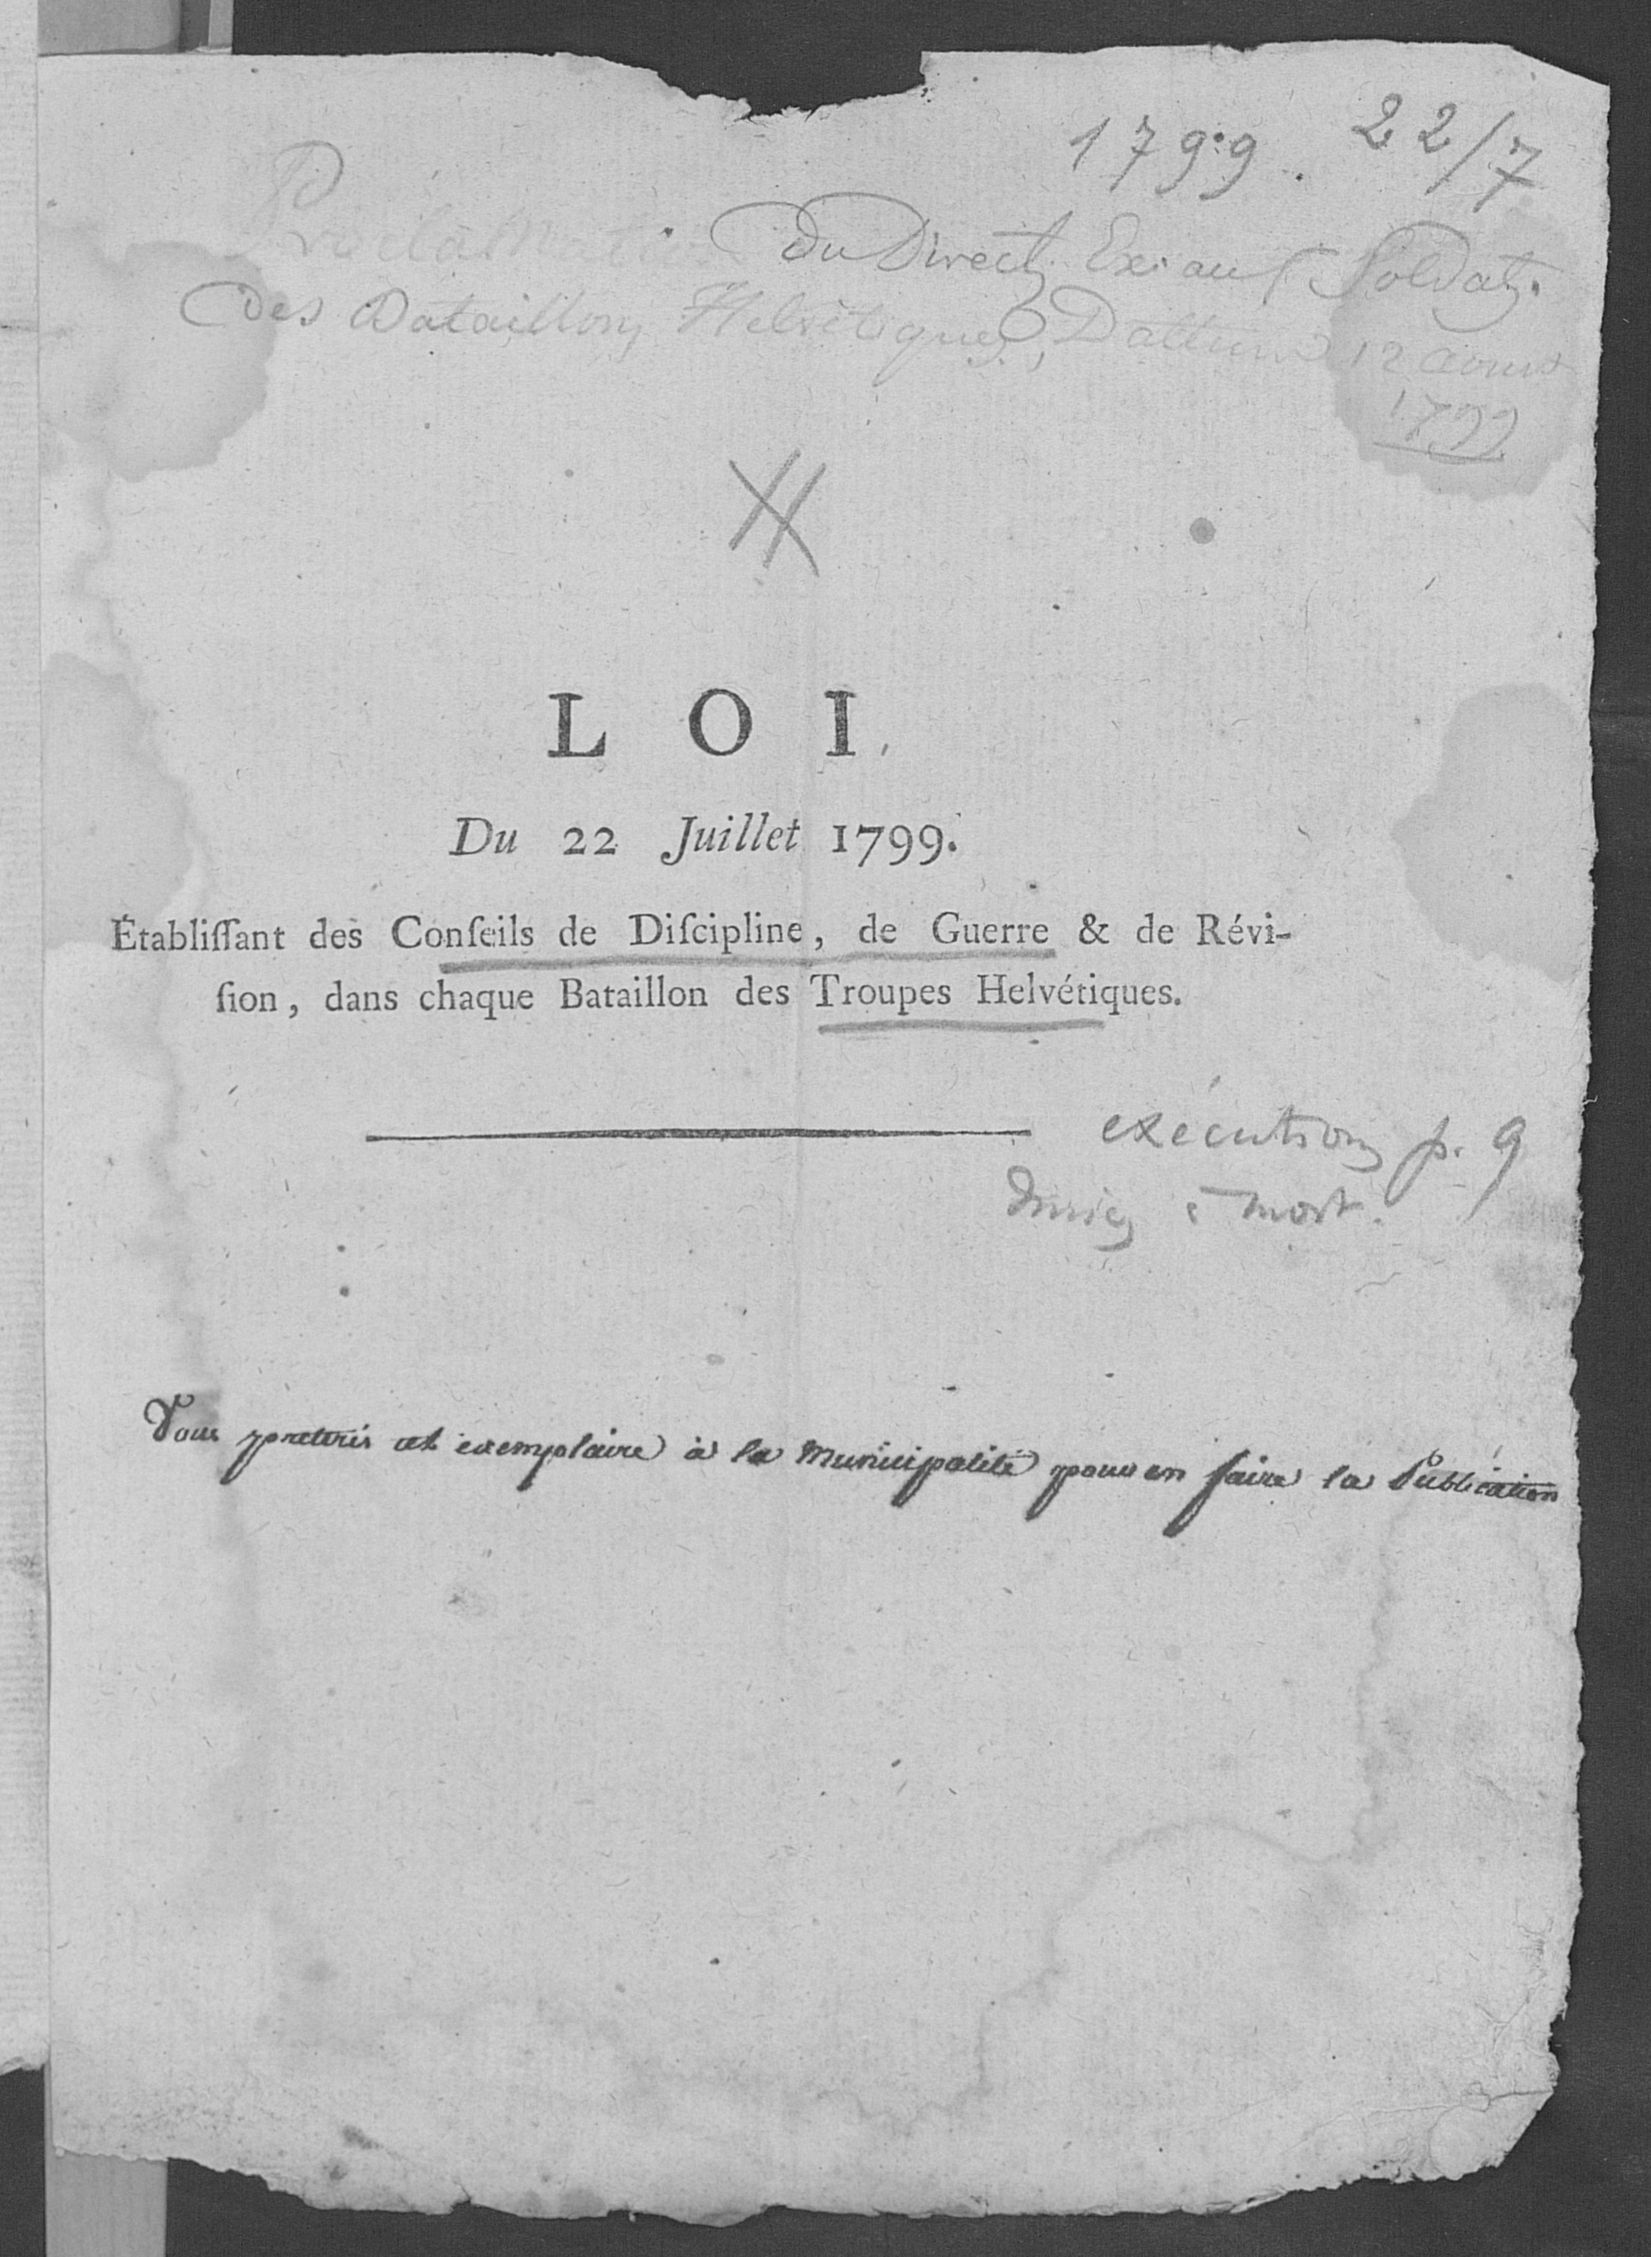 1799. 22/7
Proclamation du Direct. Ex. aux Soldats
des Bataillons Helvetiques, 12 aoust
1799
L O I.
Du 22 Juillet 1799.
Établiſſant des Conſeils de Diſcipline, de Guerre & de Révi-
ſion, dans chaque Bataillon des Troupes Helvétiques.
exécution p. 9
à mort.
Vous cet exemplaire à la Municipalité pour en faire la Publication